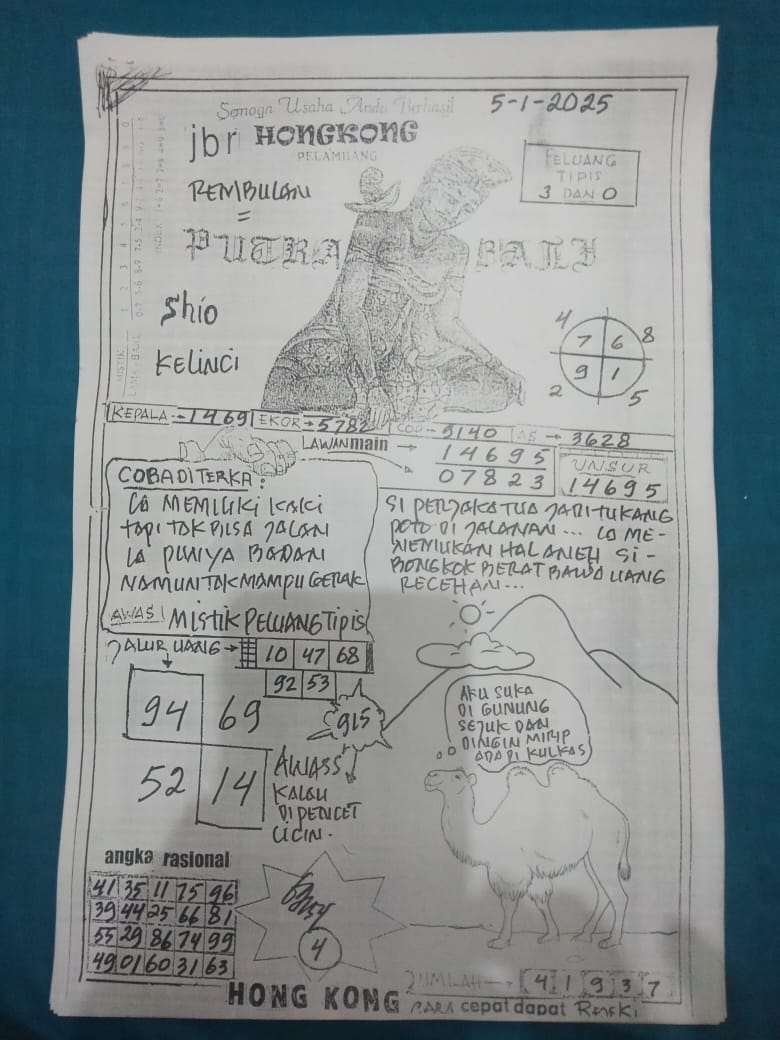 Semoga Usaha Anda Berhasil
5-1-2025
jbr HONGKONG
PELAMBANG
REMBULAN
=
PUTRA BALI
PELUANG
TIPIS
3 DAN 0
Shio
KELINCI
MISTIK
4 8
7 6
9 1
2 5
KEPALA → 1469 EKOR → 5782 COP → 9140 AS → 3628
LAWAN main → 14695
07823
UNSUR
14695
COBA DITERKA :
IA MEMILIKI KAKI
TAPI TAK BISA JALAN
IA PUNYA BADAN
NAMUN TAK MAMPU GERAK
AWAS! MISTIK PELUANG TIPIS
SI PERJAKA TUA JADI TUKANG
POTO DI JALANAN... IA ME-
NEMUKAN HAL ANEH SI-
BONGKOK BERAT BAWA UANG
RECEHAN...
JALUR UANG → 10 47 68
92 53
94 69
52 14
915
AWASS
KALAU
DIPENCET
LICIN.
AKU SUKA
DI GUNUNG
SEJUK DAN
DINGIN MIRIP
ADA DI KULKAS
angka rasional
41 35 11 75 96
39 44 25 66 81
55 29 86 74 99
49 01 60 31 63
4
JUMLAH → 4 1 9 3 7
HONG KONG PARA cepat dapat Rezeki